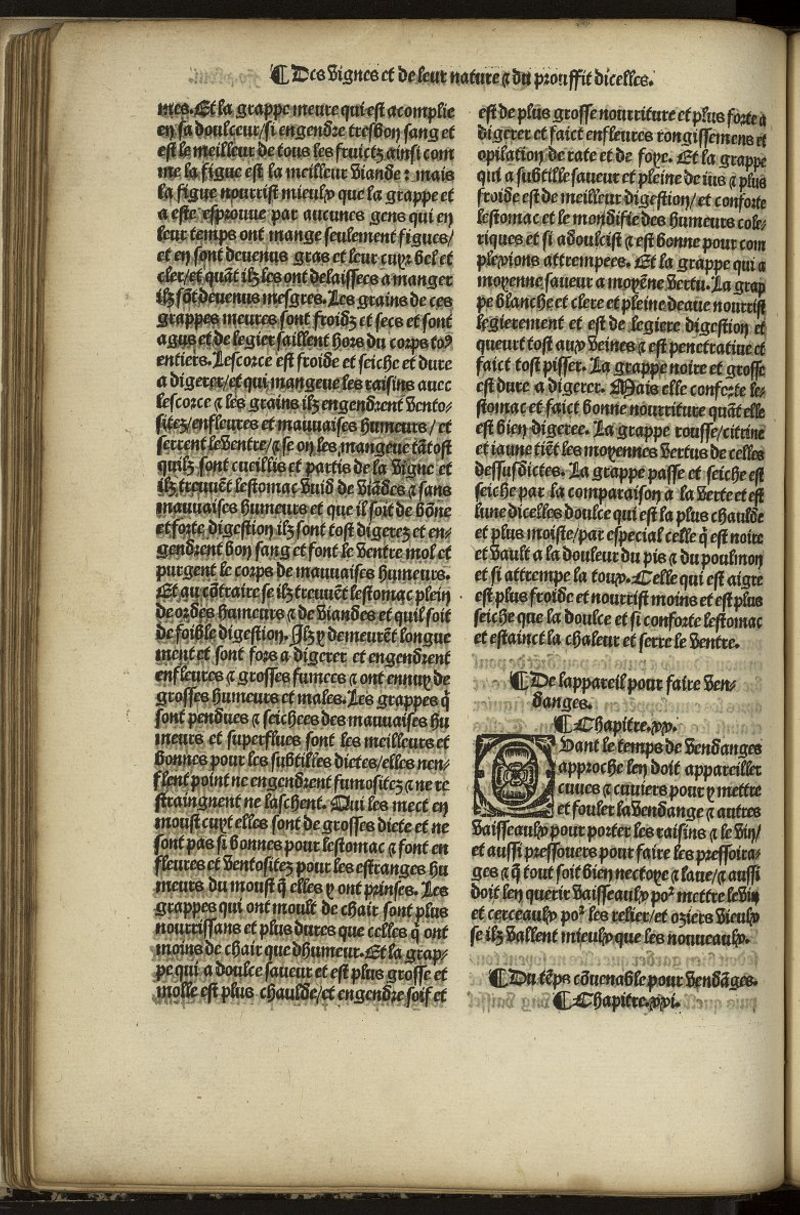 ¶ Des vignes et de leur nature ⁊ du prouffit dicelles.
mes. Et la grappe meure qui est acomplie
en sa doulceur/si engendre tresbon sang et
est le meilleur de tous les fruictz ainsi com
me la figue est la meilleur viande: mais
la figue nourrist mieulx que la grappe et
a este esprouue par aucunes gens qui en
leur temps ont mange seulement figues/
et en sont deuenus gras et leur cuyr bel et
cler/et quãt ilz les ont delaissees a manger
ilz sõt deuenus mesgres. Les grains de ces
grappes meures sont froidz et secs et sont
agus et de legier saillent hors du corps toꝰ
entiers. Lescorce est froide et seiche et dure
a digerer/et qui mangeue les raisins auec
lescorce ⁊ les grains ilz engendrent vento-
sitez/enfleures et mauuaises humeurs/ et
serrent le ventre/⁊ se on les mangeue tãtost
quilz sont cueillis et partis de la vigne et
ilz treuuẽt lestomac vuid de viãdes ⁊ sans
mauuaises humeurs et que il soit de bõne
et forte digestion ilz sont tost digerez et en-
gendrent bon sang et font le ventre mol et
purgent le corps de mauuaises humeurs.
Et au cõtraire se ilz treuuẽt lestomac plein
de ordes humeurs ⁊ de viandes et quil soit
de foible digestion. Ilz y demeurẽt longue
ment et sont fors a digerer et engendrent
enfleures ⁊ grosses fumees ⁊ ont ennuy de
grosses humeurs et males. Les grappes q̃
sont pendues ⁊ seichees des mauuaises hu
meurs et superflues sont les meilleurs et
bonnes pour les subtilles dietes/elles nen-
flent point ne engendrent fumositez ⁊ ne re
straingnent ne laschent. Qui les mect en
moust cuyt elles sont de grosses diete et ne
sont pas si bonnes pour lestomac ⁊ font en
fleures et ventositez pour les estranges hu
meurs du moust q̃ elles y ont prinses. Les
grappes qui ont moult de chair sont plus
nourrissans et plus dures que celles q̃ ont
moins de chair que dhumeur. Et la grap-
pe qui a doulce saueur et est plus grosse et
molle est plus chaulde/et engendre soif et
est de plus grosse nourriture et plus forte a
digerer et faict enfleures rongissemens et
opilation de rate et de foye. Et la grappe
qui a subtille saueur et pleine de ius ⁊ plus
froide est de meilleur digestion/et conforte
lestomac et le mondifie des humeurs cole-
riques et si adoulcist ⁊ est bonne pour com
plexions attrempees. Et la grappe qui a
moyenne saueur a moyẽne vertu. La grap
pe blanche et clere et pleine deaue nourrist
legierement et est de legiere digestion et
queurt tost aux veines ⁊ est penetratiue et
faict tost pisser. La grappe noire et grosse
est dure a digerer. Mais elle conforte le-
stomac et faict bonne nourriture quãt elle
est bien digeree. La grappe rousse/citrine
et iaune tiẽt les moyennes vertus de celles
dessusdictes. La grappe passe et seiche est
seiche par la comparaison a la verte et est
lune dicelles doulce qui est la plus chaulde
et plus moiste/par especial celle q̃ est noire
et vault a la douleur du pis ⁊ du poulmon
et si attrempe la toux. Celle qui est aigre
est plus froide et nourrist moins et est plus
seiche que la doulce et si conforte lestomac
et estainct la chaleur et serre le ventre.
¶ De lappareil pour faire ven-
danges.
¶ Chapitre.xx.
Quant le temps de vendanges
approche len doit appareiller
cuues ⁊ cuuiers pour y mettre
et fouler la vendange ⁊ autres
vaisseaulx pour porter les raisins ⁊ le vin/
et aussi pressouers pour faire les pressoira-
ges ⁊ q̃ tout soit bien nectoye ⁊ laue/⁊ aussi
doit len querir vaisseaulx poꝰ mettre le vin
et cerceaulx poꝰ les relier/et oziers vieulx
se ilz vallent mieulx que les nouueaulx.
¶ Du tẽps cõuenable pour vendãges.
¶ Chapitre.xxi.